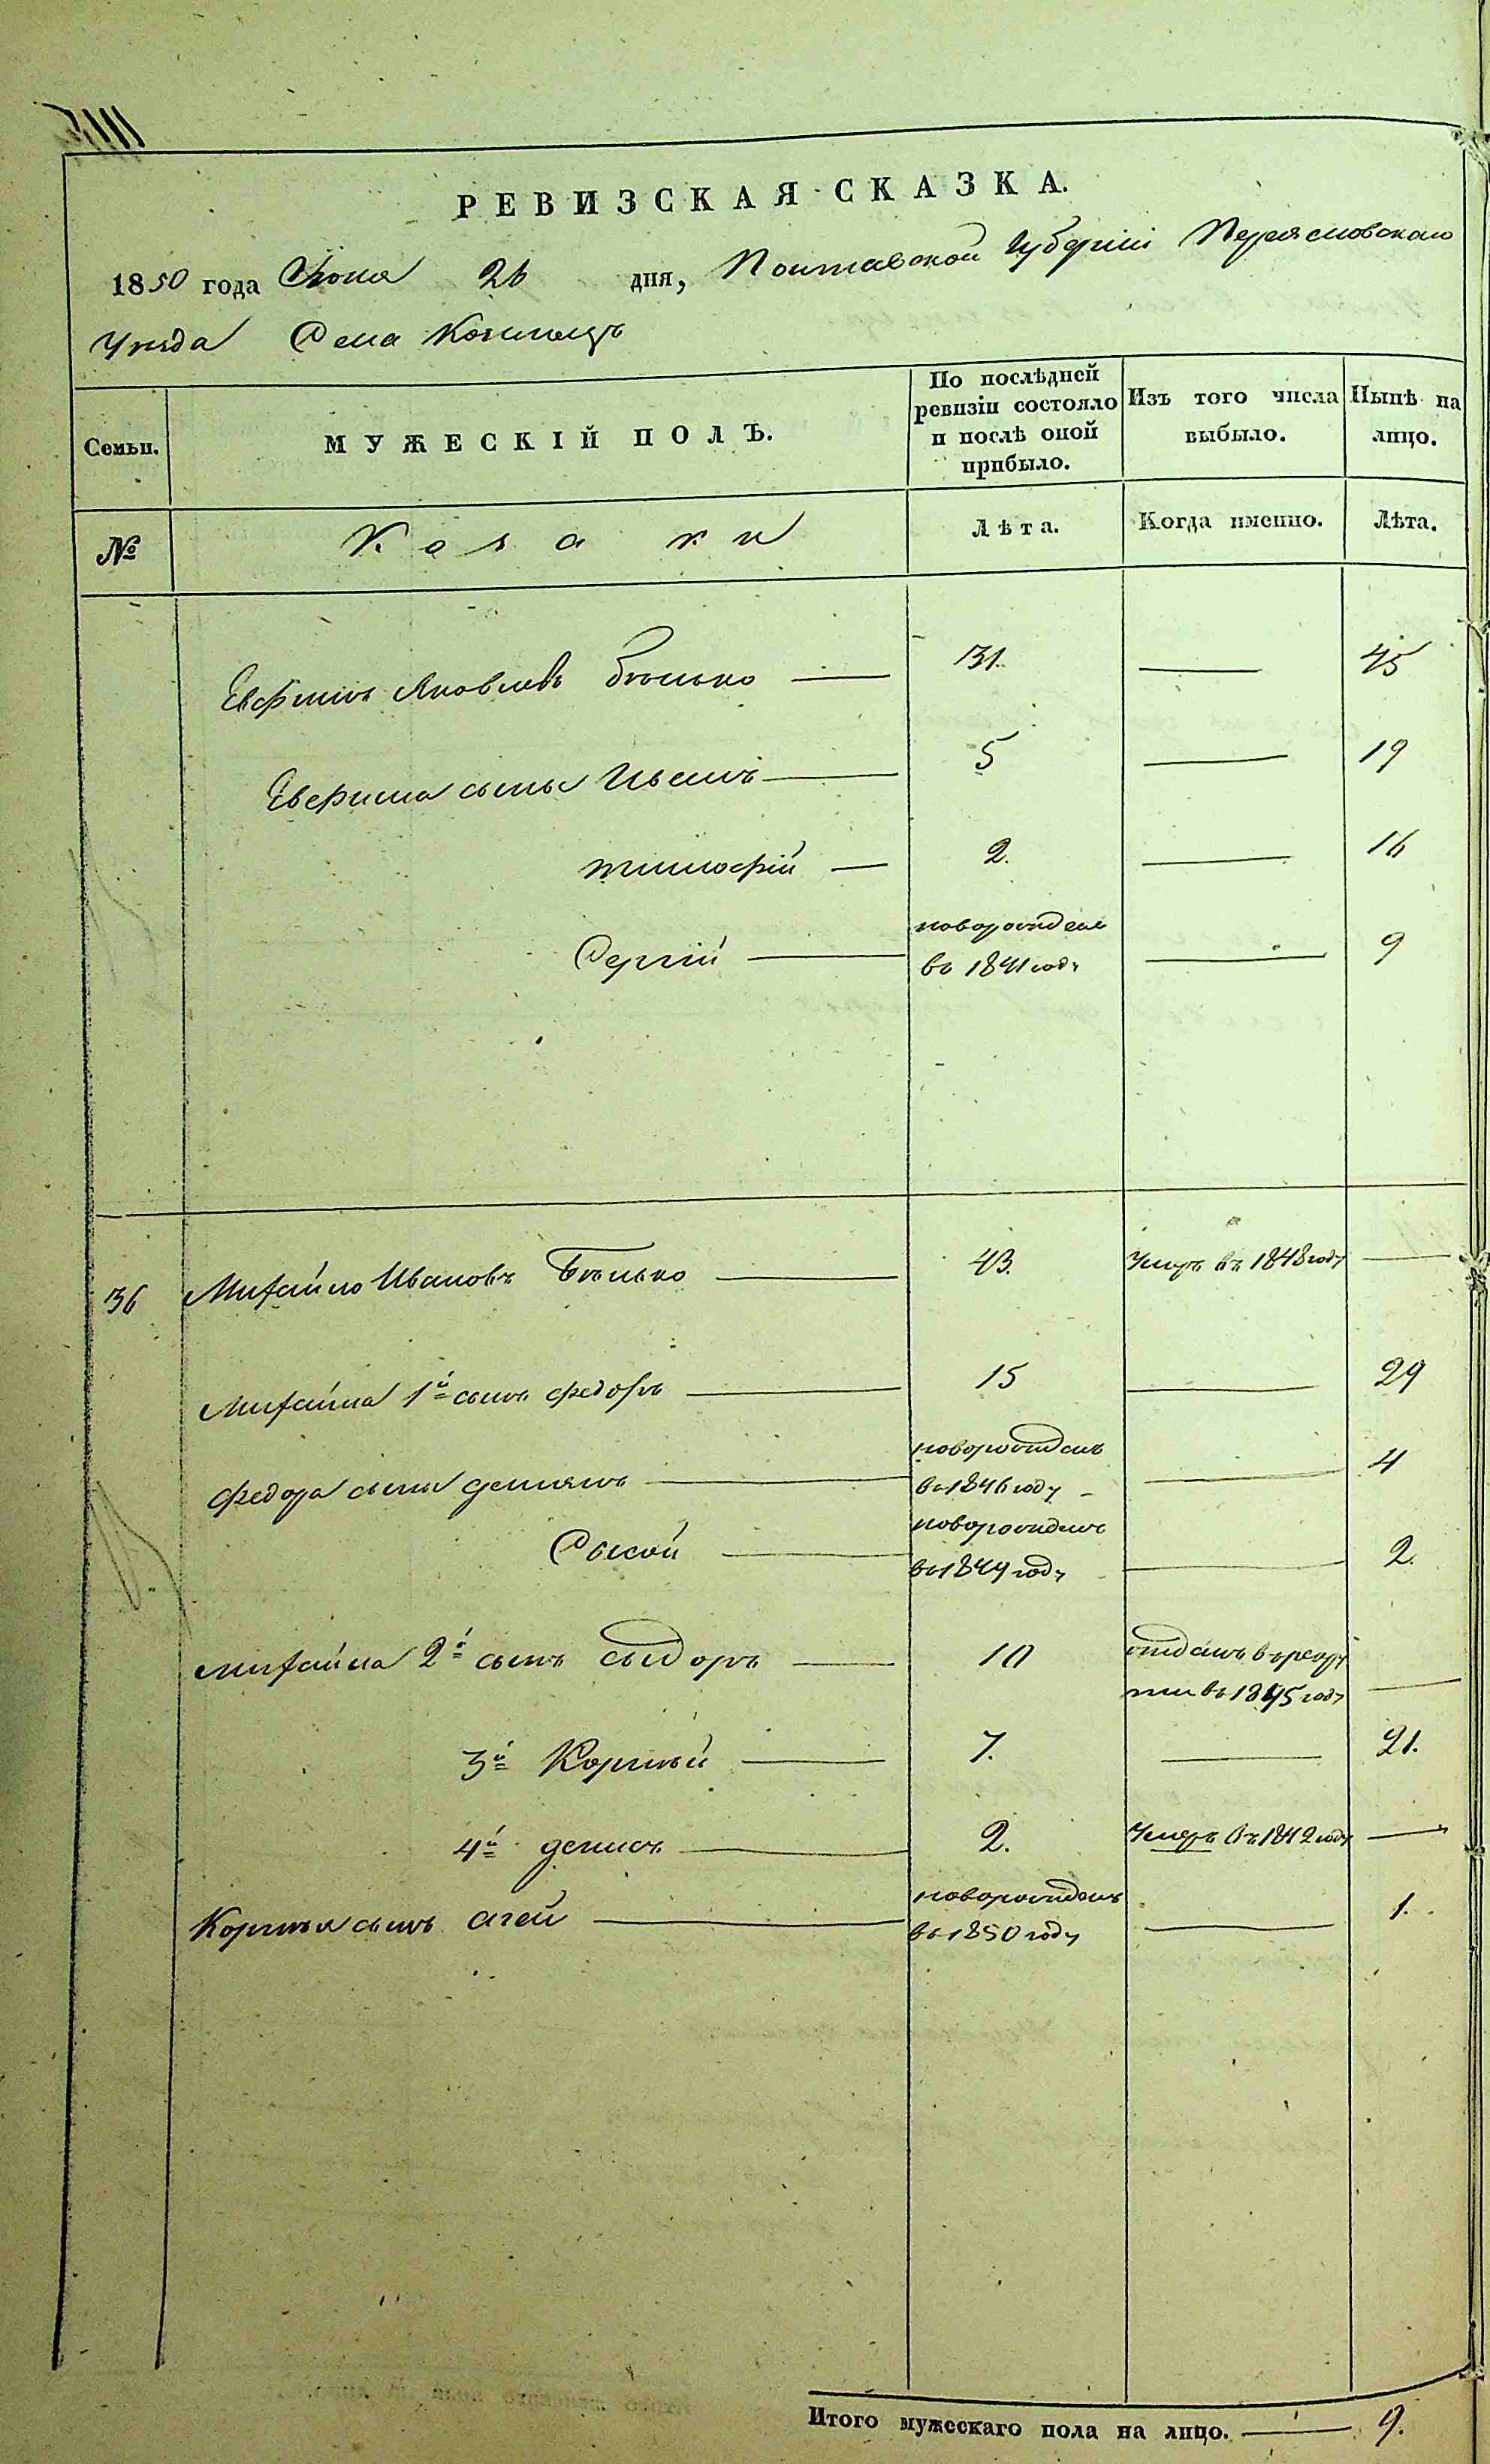 РЕВИЗСКАЯ СКАЗКА.
1850 года Июня 26 дня, Полтавской Губернии Переясловскаго
Уезда Села
Семьи.
МУЖЕСКІЙ ПОЛЪ.
По послѣдней ревизіи состояло и послѣ оной прибыло.
Изъ того числа выбыло.
Нынѣ на лицо.
№
Козаки
Лѣта.
Когда именно.
Лѣта.
Евфимъ Яковлевъ Бѣлько — 31. — 45
Евфима сыны Иванъ — 5 — 19
Тимофій — 2. — 16
Сергій — новорожденъ в 1841 году — 9
36 Михайло Ивановъ Бѣлько — 43. Умеръ въ 1848 году —
Михайла 1й сынъ Федоръ — 15 — 29
Федора сыны Демянъ — новорожденъ в 1846 году — 4
Сысой — новорожденъ в 1849 году — 2.
Михайла 2й сынъ Сидоръ — 10 отданъ в рекруты в 1845 году —
3й Корнѣй — 7. — 21.
4й Денисъ — 2. Умеръ въ 1842 году —
Корнѣя сынъ Агей — новорожденъ в 1850 году — 1.
Итого мужескаго пола на лицо. — 9.